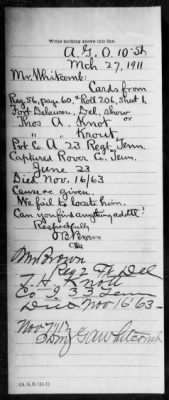 Write nothing above this line.
A. G. O. 10" St
Mch 27, 1911
Mr. Whitcomb:
Cards from
Reg 56, page 60, & Roll 206, Sheet 1,
Fort Delaware, Del, show
Thos A. Knot or
" " Krout
Pvt Co A 23 Regt Tenn
Captured Rover Co, Tenn.
June 23
Died Nov. 16/63
Cause not given.
We fail to locate him.
Can you find anything addtl?
Respectfully
Brown
Mr Brown
Reg 2 Ft Del
T. H. Knott
Co I 33 Tenn
Died Nov 16 '63
Whitcomb